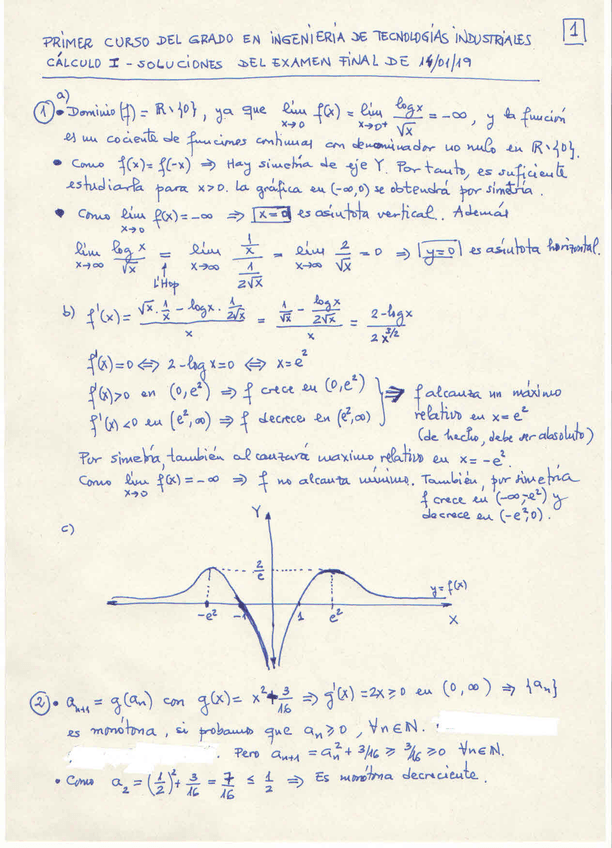 1
PRIMER CURSO DEL GRADO EN INGENIERÍA DE TECNOLOGÍAS INDUSTRIALES
CÁLCULO I - SOLUCIONES DEL EXAMEN FINAL DE 14/01/19
① a) • Dominio(f) = ℝ\{0}, ya que lím_{x→0} f(x) = lím_{x→0⁺} log x/√x = -∞, y la función
es un cociente de funciones continuas con denominador no nulo en ℝ\{0}.
• Como f(x) = f(-x) ⇒ Hay simetría de eje Y. Por tanto, es suficiente
estudiarla para x>0. La gráfica en (-∞,0) se obtendrá por simetría.
• Como lím_{x→0} f(x) = -∞ ⇒ x=0 es asíntota vertical. Además
lím_{x→∞} log x/√x = lím_{x→∞} (1/x)/(1/2√x) = lím_{x→∞} 2/√x = 0 ⇒ y=0 es asíntota horizontal.
↑
L'Hop
b) f'(x) = (√x · 1/x - log x · 1/2√x)/x = (1/√x - log x/2√x)/x = (2 - log x)/(2x^{3/2})
f'(x) = 0 ⇔ 2 - log x = 0 ⇔ x = e²
f'(x) > 0 en (0, e²) ⇒ f crece en (0, e²)
f'(x) < 0 en (e², ∞) ⇒ f decrece en (e², ∞)
⇒ f alcanza un máximo
relativo en x = e²
(de hecho, debe ser absoluto)
Por simetría, también alcanzará máximo relativo en x = -e².
Como lím_{x→0} f(x) = -∞ ⇒ f no alcanza mínimo. También, por simetría
f crece en (-∞, -e²) y
decrece en (-e², 0).
c)
Y
2/e
y = f(x)
-e² -1 1 e² X
② • a_{n+1} = g(a_n) con g(x) = x² + 3/16 ⇒ g'(x) = 2x ≥ 0 en (0, ∞) ⇒ {a_n}
es monótona, si probamos que a_n ≥ 0, ∀n∈ℕ.
. Pero a_{n+1} = a_n² + 3/16 ≥ 3/16 ≥ 0 ∀n∈ℕ.
• Como a₂ = (1/2)² + 3/16 = 7/16 ≤ 1/2 ⇒ Es monótona decreciente.